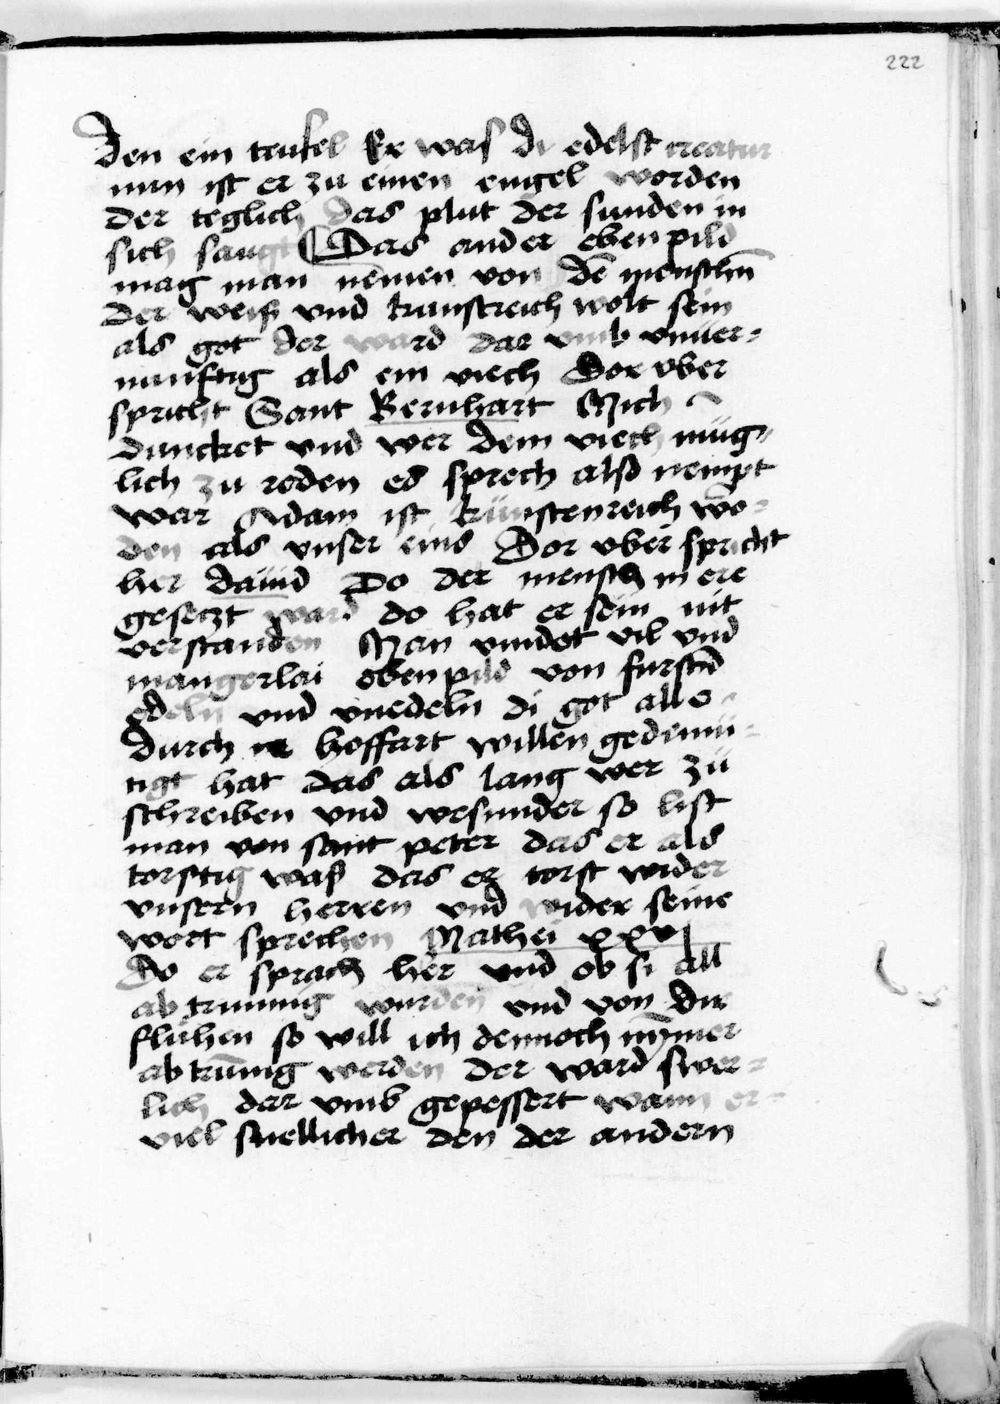 222
den ein teufel Er waß di edelst creatur
nun ist er zu einen engel worden
der teglich das plut der sunden in
sich saugt Das ander eben pild
mag man nemen von dē menschn̄
der weiß vnd kunstreich wolt sein
als got der ward dar vmb vnuer=
nunftig als ein viech Dor vber
spricht Sant Bernhart Mich
duncket vnd wer dem viech müg=
lich zu reden es sprech also nempt
war Adam ist künstenreich wo=
den als vnser eins Dor vber spricht
her dauid Do der mensch in ere
gesetzt ward do hat er sein nit
verstanden Man vindet vil vnd
mangerlai eben pild von furstē
edeln vnd vnedeln di got alle
durch ir hoffart willen gedemü=
tigt hat das als lang wer zü
schreiben vnd wesunder so list
man von sant peter das er als
torstig waß das er torst wider
vnsern herren vnd wider seine
wort sprechen Mathei xxvj
Do er sprach her vnd ob si all
ab trunnig wurden vnd von dir
fluhen so will ich dennoch nȳmer
ab trūnig werden Der ward swer=
lich dar vmb gepessert wann er
viel snellicher den der andern